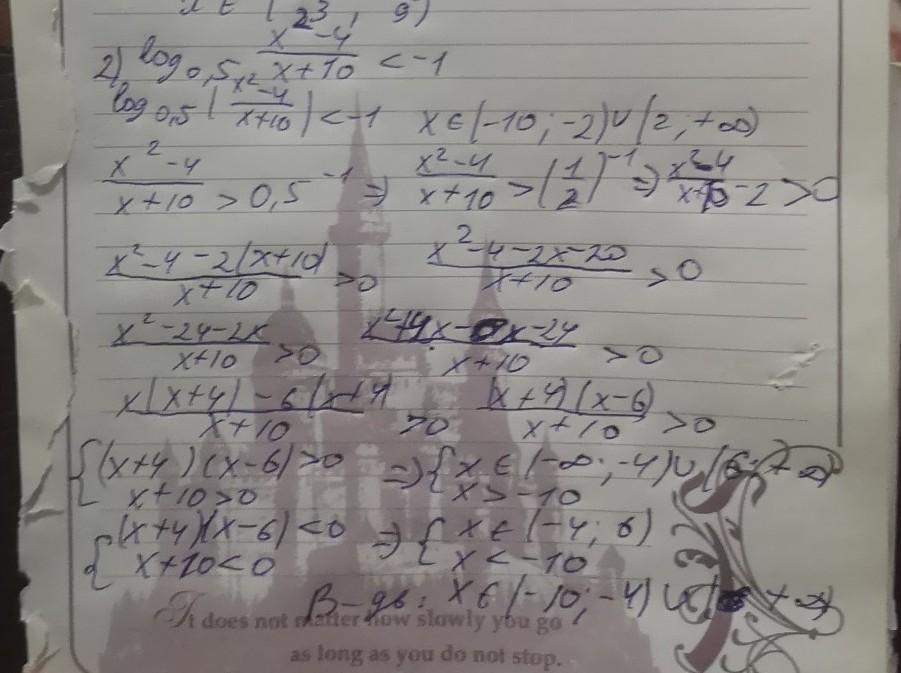 x ∈ (2³; 9)
2) log₀,₅ (x²-4)/(x+10) < -1
log₀,₅ ((x²-4)/(x+10)) < -1   x ∈ (-10; -2) ∪ (2; +∞)
(x²-4)/(x+10) > 0,5⁻¹ ⇒ (x²-4)/(x+10) > (1/2)⁻¹ ⇒ (x²-4)/(x+10) - 2 > 0
(x²-4-2(x+10))/(x+10) > 0   (x²-4-2x-20)/(x+10) > 0
(x²-24-2x)/(x+10) > 0   (x²+4x-6x-24)/(x+10) > 0
(x(x+4)-6(x+4))/(x+10) > 0   ((x+4)(x-6))/(x+10) > 0
{(x+4)(x-6) > 0 ⇒ {x ∈ (-∞; -4) ∪ (6; +∞)
x+10 > 0   x > -10
{(x+4)(x-6) < 0 ⇒ {x ∈ (-4; 6)
x+10 < 0   x < -10
В-дь: x ∈ (-10; -4) ∪ ( +∞)
It does not matter how slowly you go
as long as you do not stop.